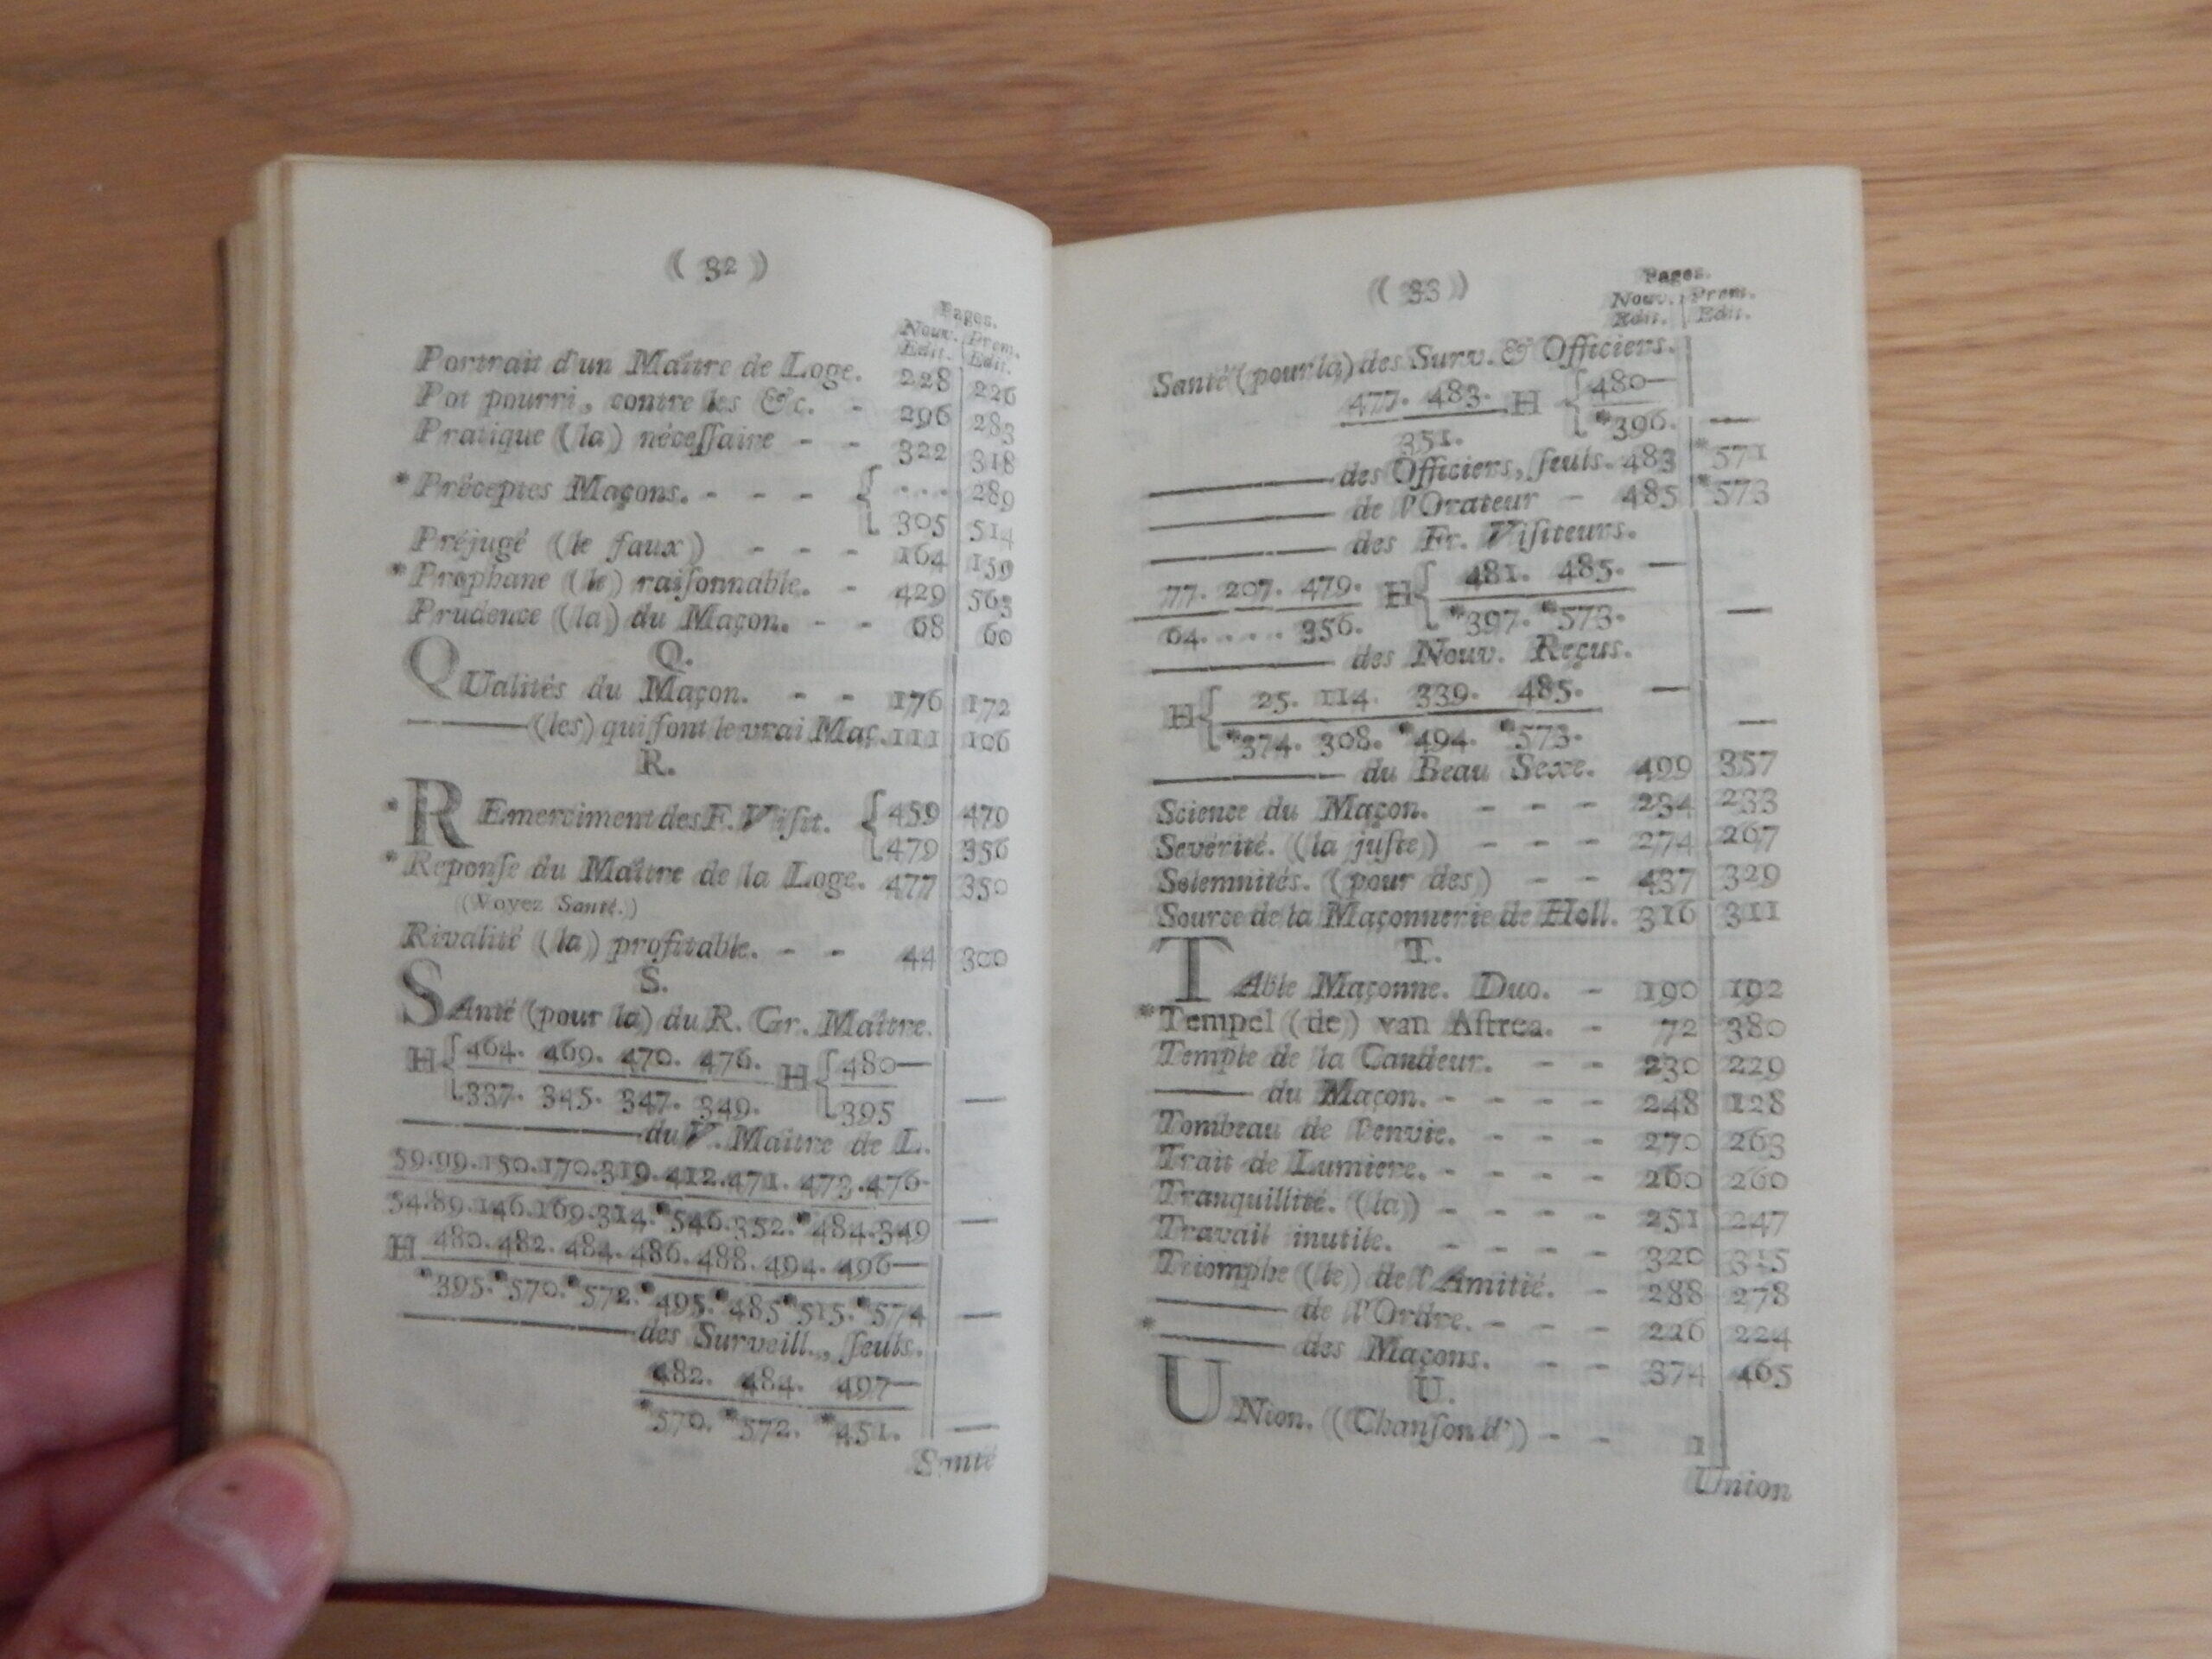 ( 32 )
Pages.
Nouv. Prem.
Edit. Edit.
Portrait d'un Maître de Loge. 228 226
Pot pourri, contre les &c. - 296 283
Pratique (la) nécessaire - - 322 318
* Préceptes Maçons. - - - { ... 289
305 514
Préjugé (le faux) - - - 164 159
* Prophane (le) raisonnable. - 429 563
Prudence (la) du Maçon. - - 68 60
Q.
QUalités du Maçon. - - 176 172
———(les) qui font le vrai Maç. 111 106
R.
* REmerciment des F. Visit. { 459 479
479 356
* Reponse du Maître de la Loge. 477 350
(Voyez Santé.)
Rivalité (la) profitable. - - 44 300
S.
SAnté (pour la) du R. Gr. Maître.
H { 464. 469. 470. 476. H { 480—
337. 345. 347. 349. 395 —
———du V. Maître de L.
59.99.150.170.319.412.471. 472.476-
54.89.146.169.314.*546.352.*484.349 —
H 480.482.484.486.488.494.496—
*395.*570.*572.*495.*485*515.*574 —
———des Surveill., seuls.
482. 484. 497—
*570. *572. *451. —
Santé
( 33 )
Pages.
Nouv. Prem.
Edit. Edit.
Santé (pour la) des Surv. & Officiers.
477. 483. H { 480—
351. *396. —
———des Officiers, seuls. 483 *571
——— de l'Orateur - 485 *573
——— des Fr. Visiteurs.
77. 207. 479. H { 481. 485. —
64. . . . . 356. *397. *573. —
——— des Nouv. Reçus.
H { 25. 114. 339. 485. —
*374. 308. *494. *573. —
——— du Beau Sexe. 499 357
Science du Maçon. - - - 234 233
Sevérité. (la juste) - - - 274 267
Solemnités. (pour des) - - 437 329
Source de la Maçonnerie de Holl. 316 311
T.
TAble Maçonne. Duo. - 190 192
* Tempel (de) van Astrea. - 72 380
Temple de la Candeur. - - 230 229
——— du Maçon. - - - - 248 128
Tombeau de l'envie. - - - 270 263
Trait de Lumiere. - - - - 260 260
Tranquillité. (la) - - - - 251 247
Travail inutile. - - - - 320 315
Triomphe (le) de l'Amitié. - 288 278
——— de l'Ordre. - - - 226 224
* ——— des Maçons. - - 374 465
U.
UNion. (Chanson d') - - 1
Union